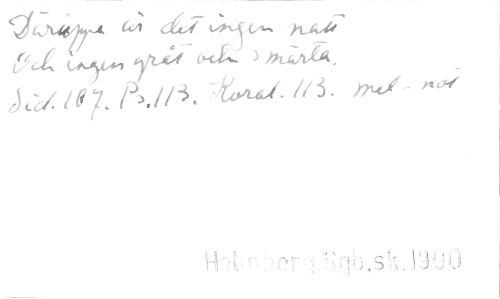 Däruppe är det ingen natt
Och ingen gråt och smärta.
Sid. 107. Ps. 113. Koral. 113. mel-not
Holmberg.Sgb,sk.1900